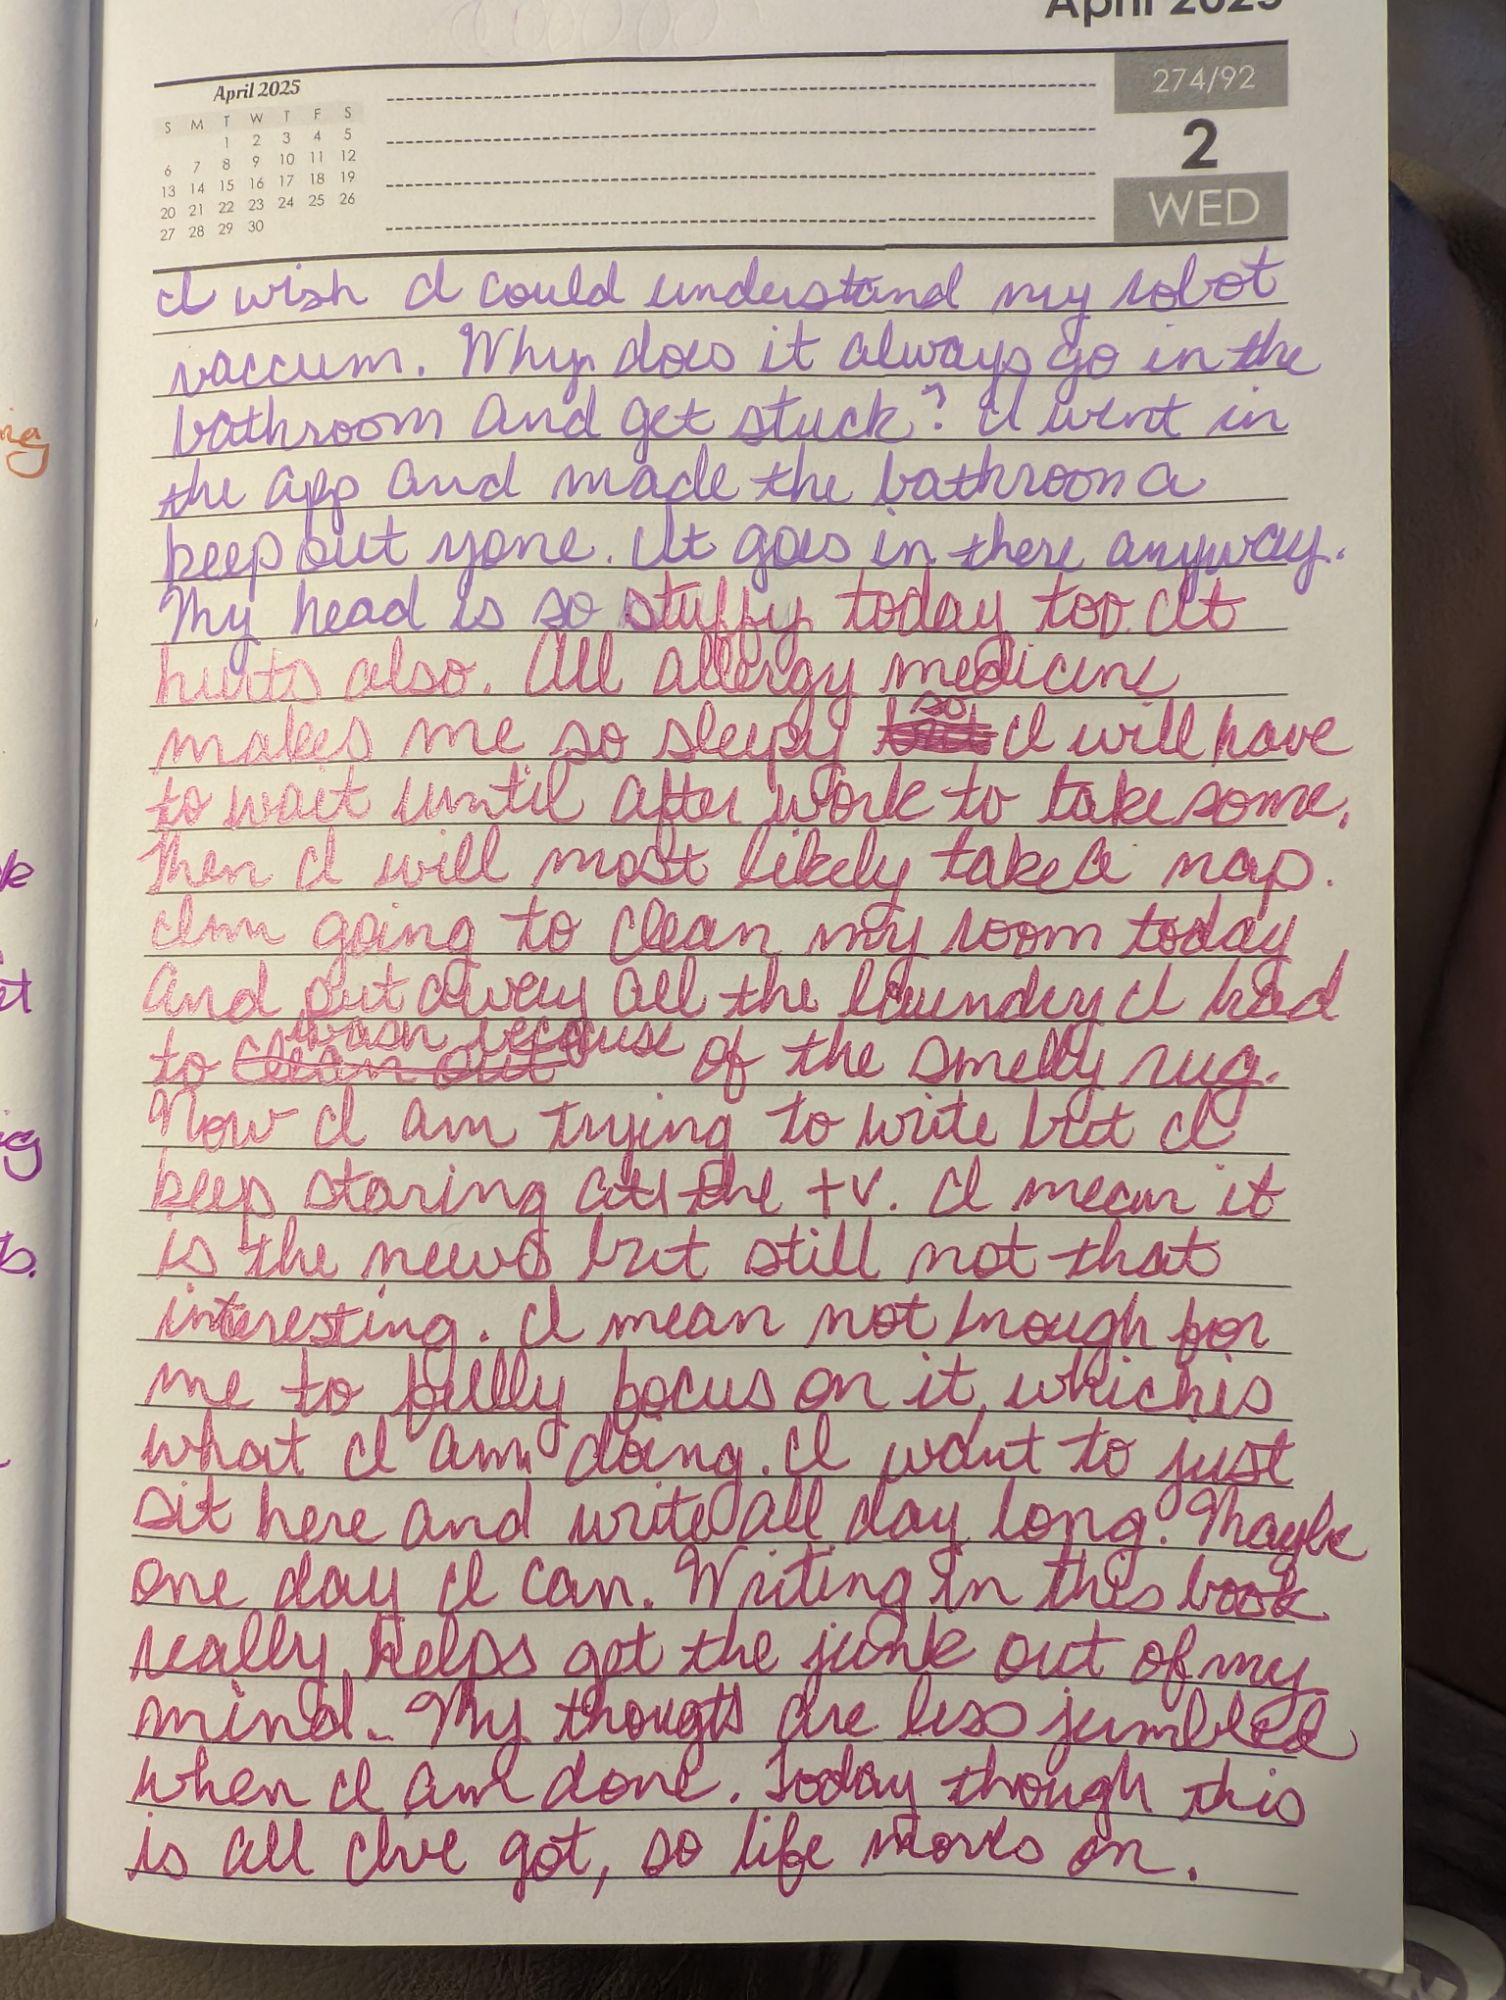 April 2025
April 2025
S M T W T F S
1 2 3 4 5
6 7 8 9 10 11 12
13 14 15 16 17 18 19
20 21 22 23 24 25 26
27 28 29 30
274/92
2
WED
I wish I could understand my robot
vaccum. Why does it always go in the
bathroom and get stuck? I went in
the app and made the bathroom a
keep out zone. It goes in there anyway.
My head is so stuffy today too. It
hurts also. All allergy medicine
makes me so sleepy so I will have
to wait until after work to take some.
Then I will most likely take a nap.
Im going to clean my room today
and put away all the laundry I had
to wash because of the smelly rug.
Now I am trying to write but I
keep staring at the tv. I mean it
is the news but still not that
interesting. I mean not enough for
me to fully focus on it, which is
what I am doing. I want to just
sit here and write all day long. Maybe
one day I can. Writing in this book
really helps get the junk out of my
mind. My thougts are less jumbled
when I am done. Today though this
is all I've got, so life moves on.
ng
et